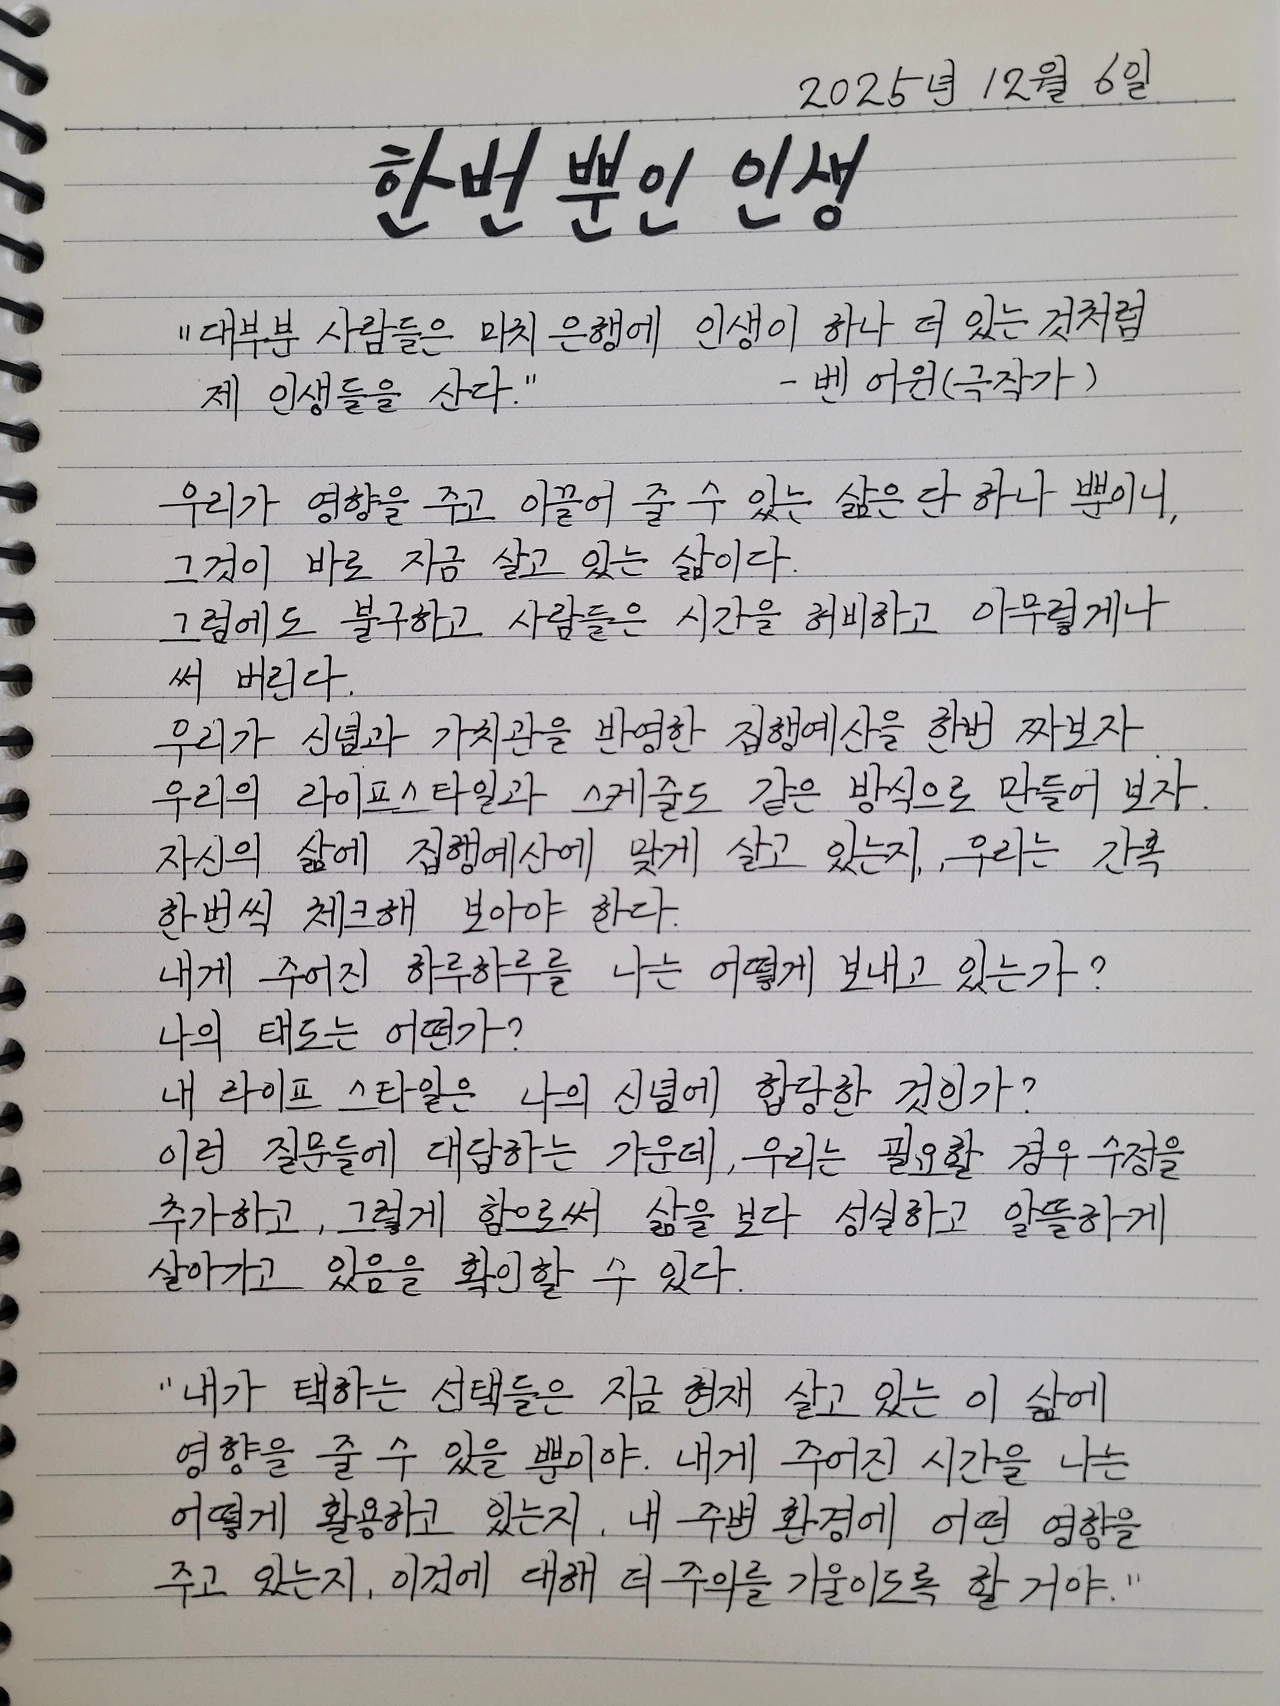 2025년 12월 6일
한번 뿐인 인생
"대부분 사람들은 마치 은행에 인생이 하나 더 있는 것처럼
제 인생들을 산다."    - 벤 어윈(극작가)
우리가 영향을 주고 이끌어 줄 수 있는 삶은 단 하나 뿐이니,
그것이 바로 지금 살고 있는 삶이다.
그럼에도 불구하고 사람들은 시간을 허비하고 아무렇게나
써 버린다.
우리가 신념과 가치관을 반영한 집행예산을 한번 짜보자.
우리의 라이프스타일과 스케줄도 같은 방식으로 만들어 보자.
자신의 삶에 집행예산에 맞게 살고 있는지, 우리는 간혹
한번씩 체크해 보아야 한다.
내게 주어진 하루하루를 나는 어떻게 보내고 있는가?
나의 태도는 어떤가?
내 라이프 스타일은 나의 신념에 합당한 것인가?
이런 질문들에 대답하는 가운데, 우리는 필요할 경우 수정을
추가하고, 그렇게 함으로써 삶을 보다 성실하고 알뜰하게
살아가고 있음을 확인할 수 있다.
"내가 택하는 선택들은 지금 현재 살고 있는 이 삶에
영향을 줄 수 있을 뿐이야. 내게 주어진 시간을 나는
어떻게 활용하고 있는지, 내 주변 환경에 어떤 영향을
주고 있는지, 이것에 대해 더 주의를 기울이도록 할 거야."